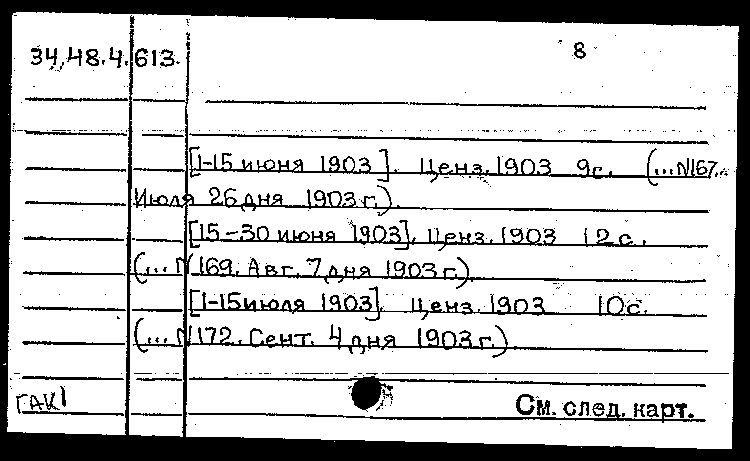 34,48.4.613. 8
[1-15 июня 1903]. Ценз. 1903 9с. (...N167.
Июля 26 дня 1903 г.).
[15-30 июня 1903]. Ценз. 1903 12с.
(...N169. Авг. 7 дня 1903 г.).
[1-15 июля 1903]. Ценз. 1903 10с.
(...N172. Сент. 4 дня 1903 г.).
ГАК1
См. след. карт.